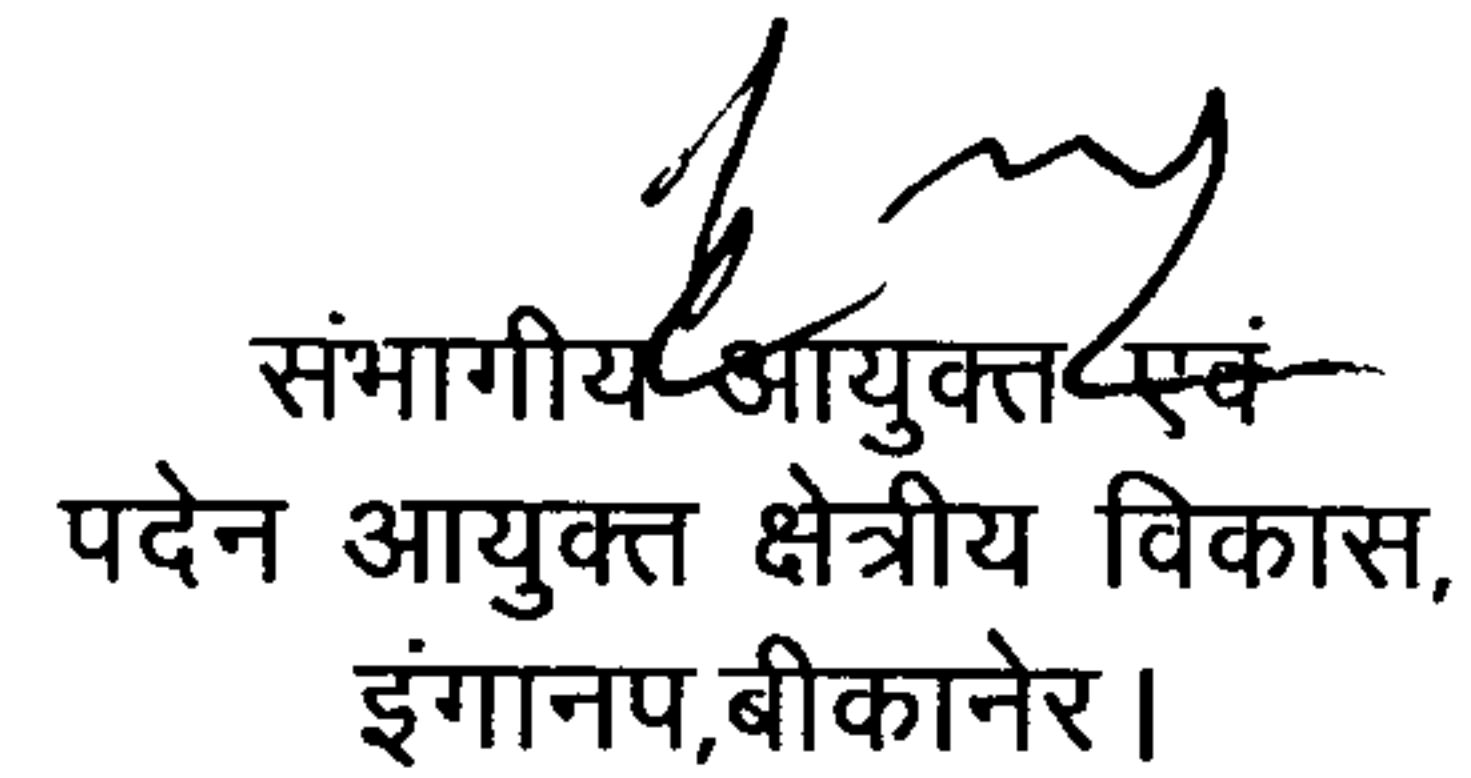 संभागीय आयुक्त एवं
पदेन आयुक्त क्षेत्रीय विकास,
इंगानप,बीकानेर।